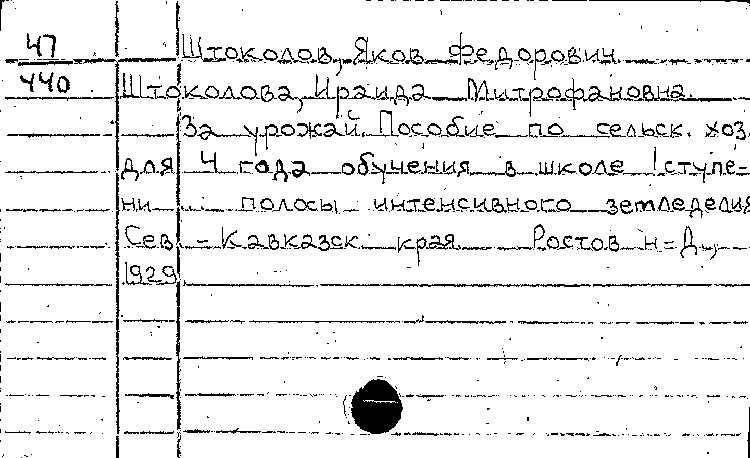 47 Штоколов, Яков Федорович
440 Штоколова, Ираида Митрофановна.
За урожай. Пособие по сельск. хоз.
для 4 года обучения в школе I ступе=
ни полосы интенсивного земледелия
Сев.-Кавказск. края. Ростов н=Д.,
1929